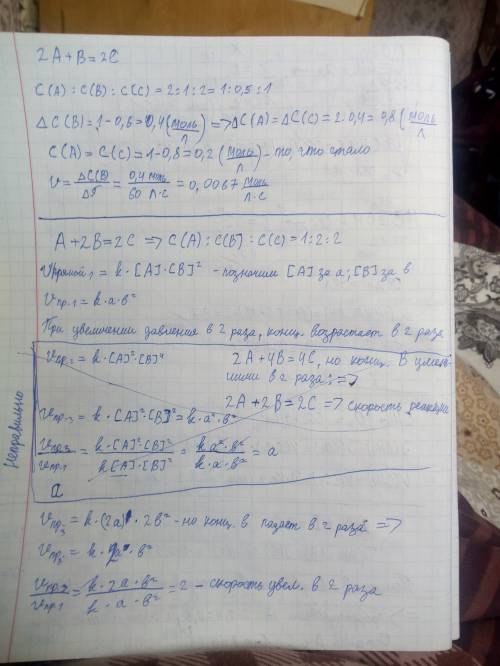 2A+B=2C
C(A) : C(B) : C(C) = 2:1:2 = 1:0,5:1
ΔC(B)=1-0,6=0,4(моль/л) => ΔC(A)=ΔC(C)=2·0,4=0,8(моль/л
C(A)=C(C)=1-0,8=0,2(моль/л) - то, что стало
V=ΔC(B)/ΔT=0,4 моль/60 л·с=0,0067 моль/л·с
A+2B=2C => C(A):C(B):C(C)=1:2:2
Vпрямой1 = k·[A]·[B]² - позначим [A] за a; [B] за в
Vпр.1=k·a·в²
При увеличении давления в 2 раза, конц. возрастает в 2 раза
Неправильно
Vпр2=k·[A]²·[B]⁴ 2A+4B=4C, но конц. B умень-
шили в 2 раза =>
2A+2B=2C => скорость реакции
Vпр.3=k·[A]²·[B]²=k·a²·в²
Vпр3/Vпр.1=k·[A]²·[B]²/k[A]·[B]²=k a²·в²/k·a·в²=a
Vпр2=k·(2a)·2в² - но конц. в падает в 2 раза =>
Vпр3=k·2a·в²
Vпр2/Vпр1=k·2a·в²/k·a·в²=2 - скорость увел. в 2 раза